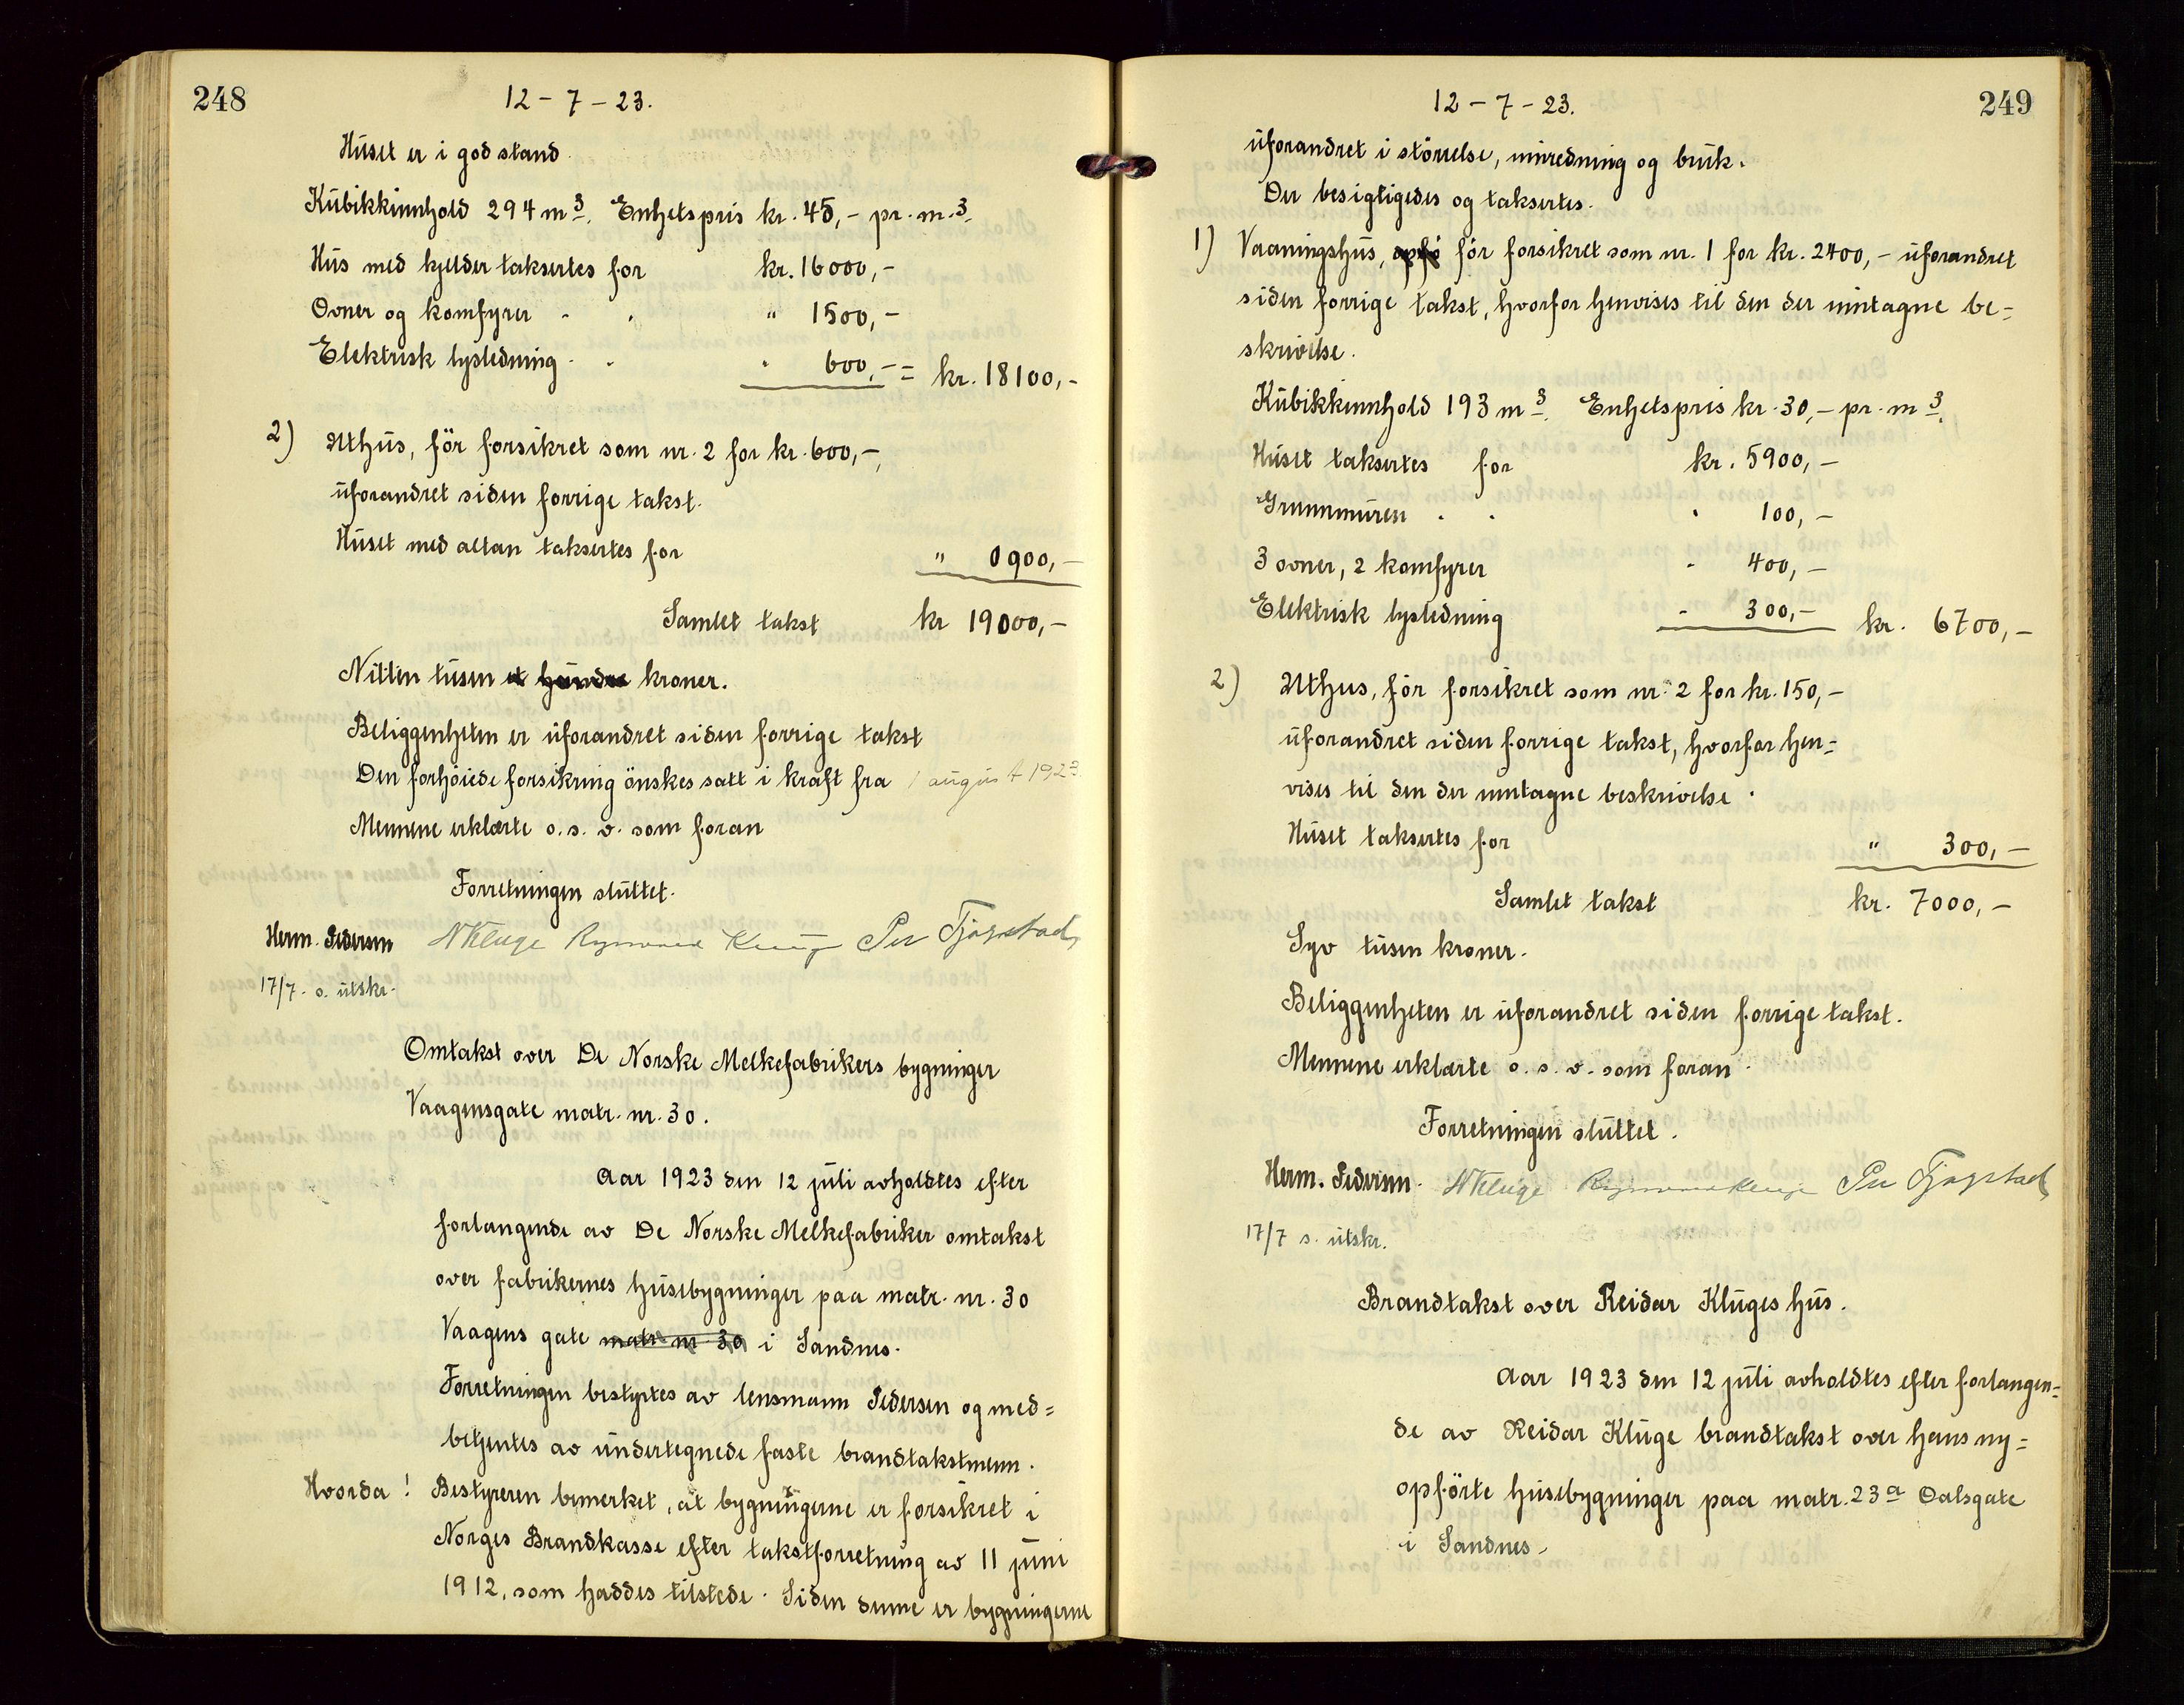 248
12 - 7 - 23.
Huset er i god stand.
Kubikkinnhold 294 m3. Enhetspris kr. 45,- pr. m.3.
Hus med kjelder taksertes for kr. 16000,-
Ovner og komfyrer - . " 1500,-
Elektrisk lysledning . . . 600,- = kr. 18100,-
2) Uthus, för forsikret som nr. 2 for kr. 600,-,
uforandret siden forrige takst.
Huset med altan taksertes for " 0900,-
Samlet takst kr 19000,-
Nitten tusen et hundre kroner.
Beliggenheten er uforandret siden forrige takst
Den forhöiede forsikring önskes satt i kraft fra 1 august 1923.
Mennene erklærte o. s. v. som foran
Forretningen sluttet.
Herm. Pedersen N Kluge Per Tjågstad
17/7. s. utskr.
Omtakst over De Norske Melkefabrikers bygninger
Vaagensgate matr. nr. 30.
Aar 1923 den 12 juli avholdtes efter
forlangende av De Norske Melkefabriker omtakst
over fabrikernes husebygninger paa matr. nr. 30
Vaagens gate matr. nr 30 i Sandnes.
Forretningen bestyrtes av lensmann Pedersen og med=
betjentes av undertegnede faste brandtakstmenn.
Hvorda! Bestyreren bemerket, at bygningerne er forsikret i
Norges Brandkasse efter takstforretning av 11 juni
1912, som haddes tilstede. Siden denne er bygningerne
249
12 - 7 - 23.
uforandret i störrelse, innredning og bruk.
Der besigtigedes og taksertes.
1) Vaaningshus, opfö för forsikret som nr. 1 for kr. 2400,- uforandret
siden forrige takst, hvorfor henvises til den der inntagne be=
skrivelse.
Kubikkinnhold 193 m3. Enhetspris kr. 30,- pr. m3.
Huset taksertes for kr. 5900,-
Grunnmuren . . . 100,-
3 ovner, 2 komfyrer - 400,-
Elektrisk lysledning - 300,- kr. 6700,-
2) Uthus, för forsikret som nr. 2 for kr. 150,-
uforandret siden forrige takst, hvorfor hen=
vises til den der inntagne beskrivelse.
Huset taksertes for " 300,-
Samlet takst kr. 7000,-
Syv tusen kroner.
Beliggenheten er uforandret siden forrige takst.
Mennene erklærte o. s. v. som foran.
Forretningen sluttet.
Herm. Pedersen. N Kluge Per Tjågstad
17/7 s. utskr.
Brandtakst over Reidar Kluges hus.
Aar 1923 den 12 juli avholdtes efter forlangen=
de av Reidar Kluge brandtakst over hans ny=
opförte husebygninger paa matr. 23a Dalsgate
i Sandnes.